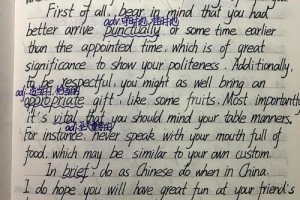 First of all, bear in mind that you had
adv.守时地,准时地
better arrive punctually or some time earlier
than the appointed time, which is of great
significance to show your politeness. Additionally,
to be respectful, you might as well bring an
appropriate gift, like some fruits. Most importantly
it's vital that you should mind your table manners.
For instance, never speak with your mouth full of
food, which may be similar to your own custom.
In brief, do as Chinese do when in China.
I do hope you will have great fun at your friend's